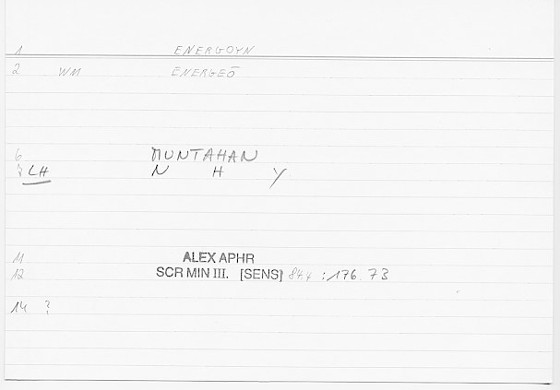 1 ENERGOYN
2 WM ENERGEŌ
6 MUNTAHAN
7 LH N H Y
11 ALEX APHR
12 SCR MIN III. [SENS] 844 : 176.73
14 ?